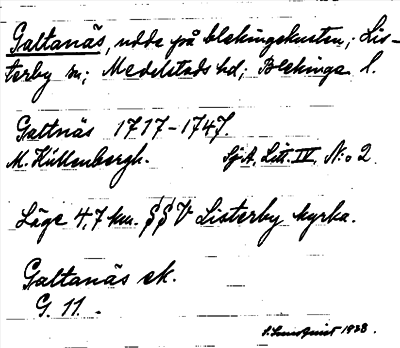 Galtanäs, udde på blekingekusten; Lis-
terby sn; Medelstads hd; Blekinge l.
Galtnäs 1717-1747.
M. Küllenbergh. SjA, Litt. IV, N:o 2.
Läge 4,7 km. SSV Listerby kyrka.
Galtanäs ek.
G. 11.
S. Lundquist 1928.